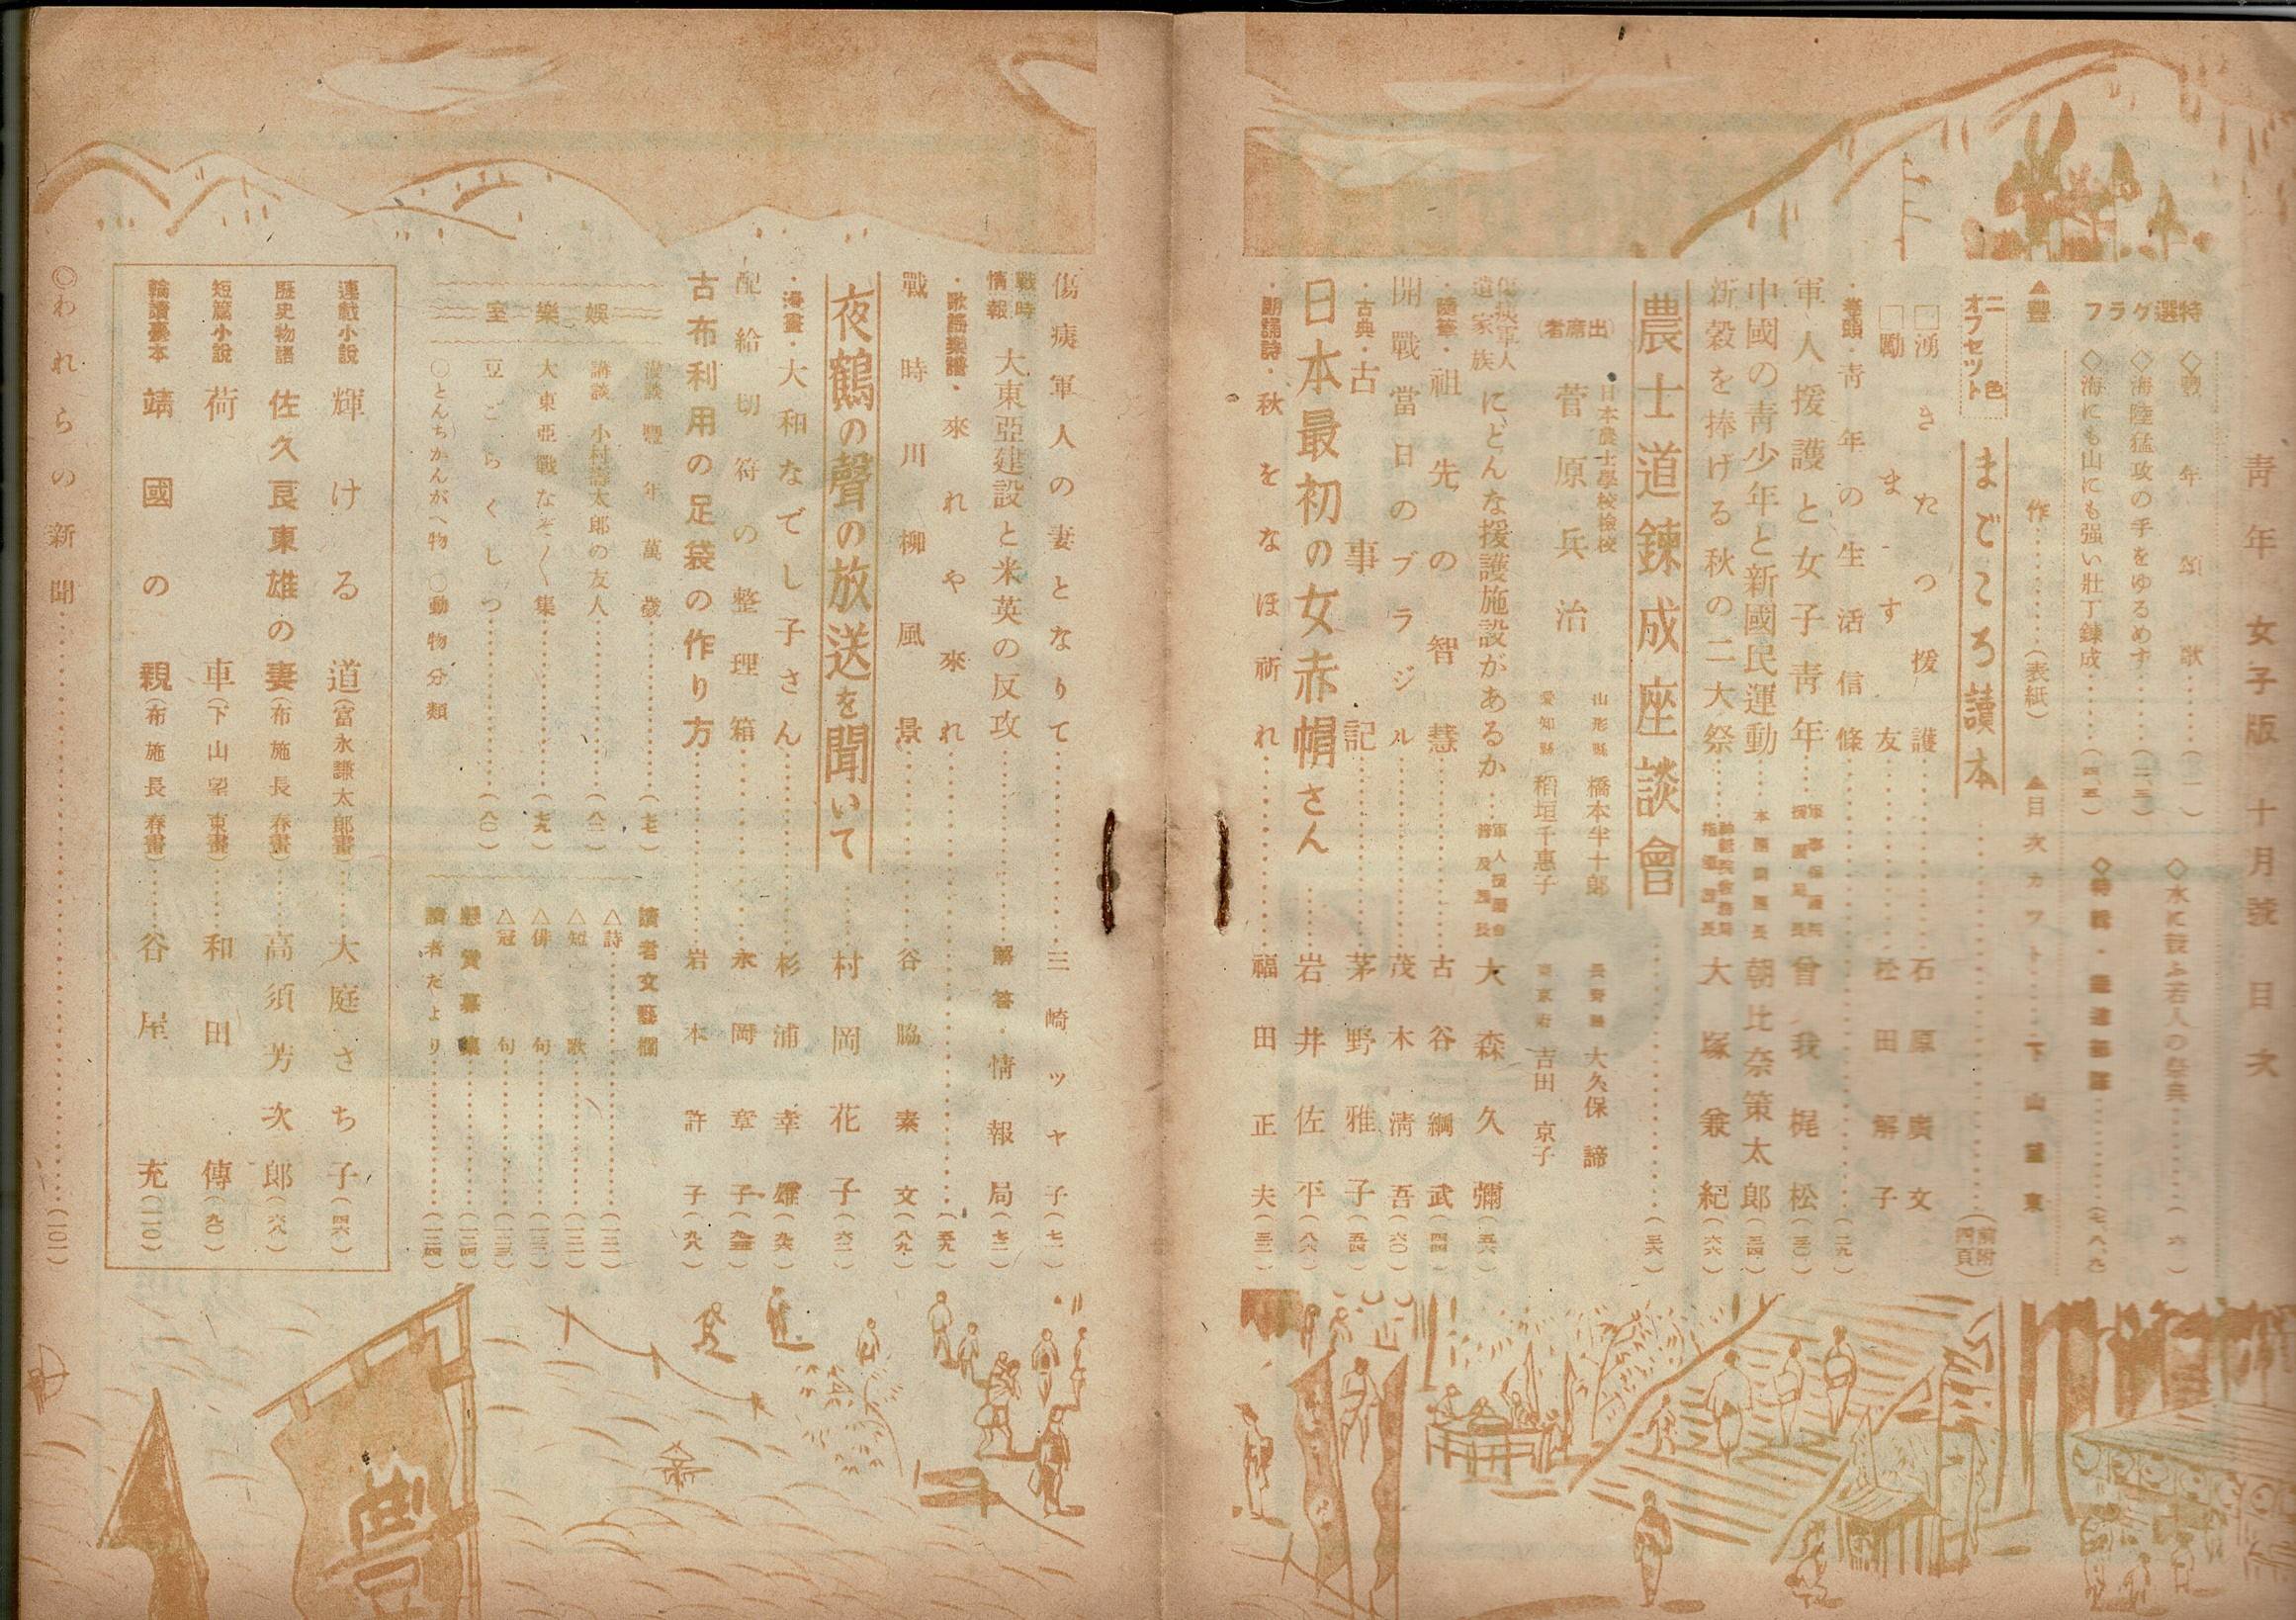 青年 女子版 十月號 目次
特選グラフ
◇豊年頌歌……(一)
◇海陸猛攻の手をゆるめず……(二、三)
◇海にも山にも强い壯丁錬成……(四、五)
◇水に競ふ若人の祭典……(六)
▲豐作……(表紙)
▲目次カット……下山望東
二色オフセツト
まごころ讀本……(前附四頁)
□湧きたつ援護……石原廣文
□勵ます友……松田解子
・卷頭・靑年の生活信條……(二九)
軍人援護と女子靑年……軍事保護院援護局長 曾我梶松(三〇)
中國の靑少年と新國民運動……朝比奈策太郎(三四)
新穀を捧げる秋の二大祭……大塚兼紀(六六)
農士道鍊成座談會……(三六)
(出席者)
日本農士學校檢校
菅原兵治
山形縣 橋本半十郎
愛知縣 稻垣千惠子
長野縣 大久保諦
東京府 吉田京子
傷痍軍人遺家族にどんな援護施設があるか……大森久彌(五六)
・隨筆・祖先の智慧……古谷綱武(四四)
開戰當日のブラジル……茂木淸吾(六〇)
・古典・古事記……茅野雅子(五四)
日本最初の女赤帽さん……岩井佐平(八六)
・朗誦詩・秋をなほ祈れ……福田正夫(三二)
傷痍軍人の妻となりて……三崎ツヤ子(七一)
戰時情報 大東亞建設と米英の反攻……解答・情報局(七二)
・歌謠樂譜・來れや來れ……(五九)
戰時川柳風景……谷脇素文(八九)
夜鶴の聲の放送を聞いて……村岡花子(六二)
・漫畫・大和なでし子さん……杉浦幸雄(九六)
配給切符の整理箱……永岡章子
古布利用の足袋の作り方……岩本許子(九八)
娯樂室
漫談 豐年萬歲……(七七)
講談 小村壽太郎の友人……(八二)
大東亞戰なぞ〱集……(七九)
豆ごらくしつ……(八〇)
○とんちかんがへ物 ○動物分類
讀者文藝欄
△詩……(一二一)
△短歌……(一二二)
△俳句……(一二三)
△冠句……(一二三)
懸賞募集……(一二四)
讀者だより……(一二四)
連載小說 輝ける道(富永謙太郎畫)……大庭さち子(四六)
歷史物語 佐久良東雄の妻(布施長春畫)……高須芳次郎(六八)
短篇小說 荷車(下山望東畫)……和田傳(九〇)
輪讀臺本 靖國の親(布施長春畫)……谷屋充(一一〇)
◎われらの新聞……(一〇一)
豐